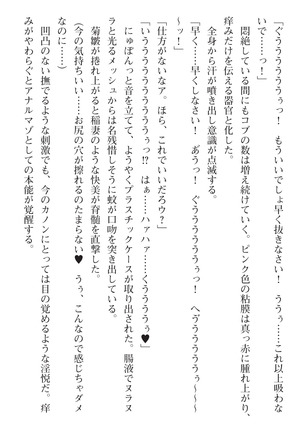 「ぐううううううぅっ！　もういいでしょ早く抜きなさい！　ううぅ……これ以上吸わな
いで……っ！」
　悶絶している間にもコブの数は増え続けていく。ピンク色の粘膜は真っ赤に腫れ上がり、
痒みだけを伝える器官と化した。
　全身から汗が噴き出し意識が点滅する。
「早く……早くしなさい！　あうっ！　ぐうううううぅっ！　へヴうううううぅ～～～
～ッ！」
「仕方がないなァ。ほら、これでいいだろゥ？」
「いうううううううううぅっ⁉　はぁ……ハァハァ……くうううぅ♥」
　にゅぽんっと音を立てて、ようやくプラスチックケースが取り出された。腸液でヌラヌ
ラと光るメッシュからは名残惜しそうに蚊が口吻を突き出している。
　菊皺が捲れ上がると稲妻のような快美が脊髄を直撃した。
（今の気持ちいい……お尻の穴が擦れるのたまらない♥　うぅ、こんなので感じちゃダメ
なのに……）
　凹凸のない撫でるような刺激でも、今のカノンにとっては目の覚めるような淫悦だ。痒
みがやわらぐとアナルマゾとしての本能が覚醒する。